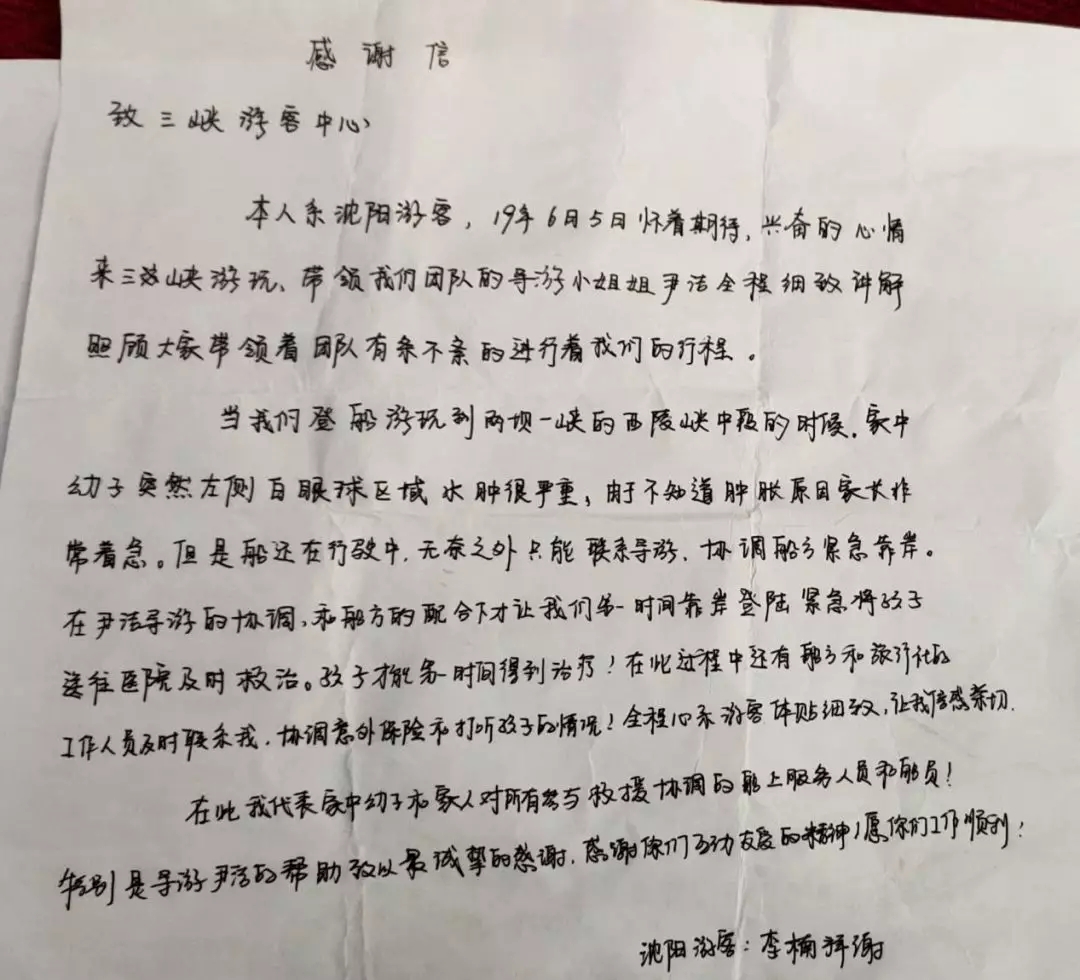 感谢信
致三峡游客中心
本人系沈阳游客，19年6月5日怀着期待，兴奋的心情
来三峡游玩、带领我们团队的导游小姐姐尹洁全程细致讲解
照顾大家带领着团队有条不紊的进行着我们的行程。
当我们登船游玩到两坝一峡的西陵峡中段的时候．家中
幼子突然左侧白眼球区域水肿很严重，由于不知道肿胀原因家长非
常着急。但是船还在行驶中，无奈之外只能联系导游．协调船方紧急靠岸。
在尹洁导游的协调，和船方的配合下才让我们第一时间靠岸登陆紧急将孩子
送往医院及时救治。孩子才能第一时间得到治疗！在此过程中还有船方和旅行社的
工作人员及时联系我．协调意外保险和打听孩子的情况！全程心系游客体贴细致，让我倍感亲切．
在此我代表家中幼子和家人对所有参与救援协调的船上服务人员和船员！
特别是导游尹洁的帮助致以最诚挚的感谢．感谢你们互助友爱的精神！愿你们工作顺利！
沈阳游客：李楠拜谢